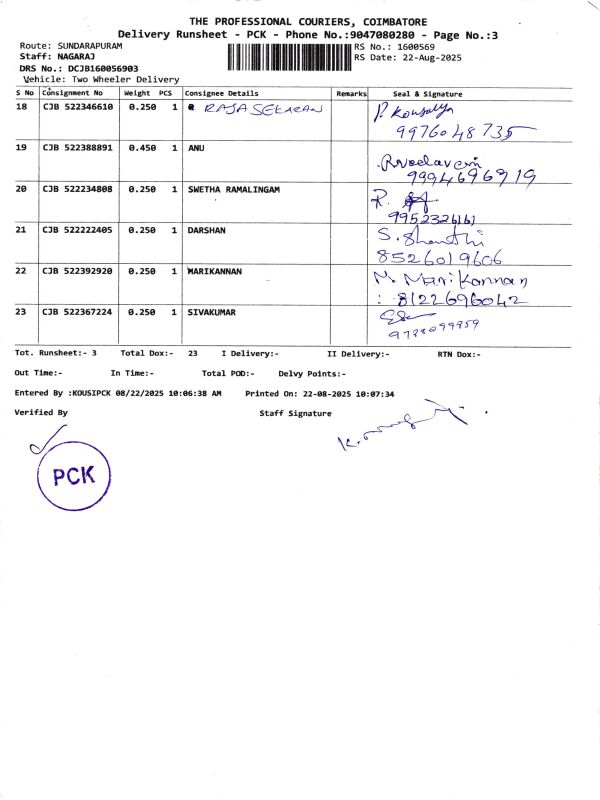 THE PROFESSIONAL COURIERS, COIMBATORE
Delivery Runsheet - PCK - Phone No.:9047080280 - Page No.:3
Route: SUNDARAPURAM RS No.: 1600569
Staff: NAGARAJ RS Date: 22-Aug-2025
DRS No.: DCJB160056903
Vehicle: Two Wheeler Delivery
S No Consignment No Weight PCS Consignee Details Remarks Seal & Signature
18 CJB 522346610 0.250 1 RAJASEKARAN P. Kousalya
9976048735
19 CJB 522388891 0.450 1 ANU
9994696919
20 CJB 522234808 0.250 1 SWETHA RAMALINGAM R.
9952326161
21 CJB 522222405 0.250 1 DARSHAN S. Shanthi
8526019606
22 CJB 522392920 0.250 1 MARIKANNAN M. Marikannan
: 8122696042
23 CJB 522367224 0.250 1 SIVAKUMAR
Tot. Runsheet:- 3 Total Dox:- 23 I Delivery:- II Delivery:- RTN Dox:-
Out Time:- In Time:- Total POD:- Delvy Points:-
Entered By :KOUSIPCK 08/22/2025 10:06:38 AM Printed On: 22-08-2025 10:07:34
Verified By Staff Signature
PCK